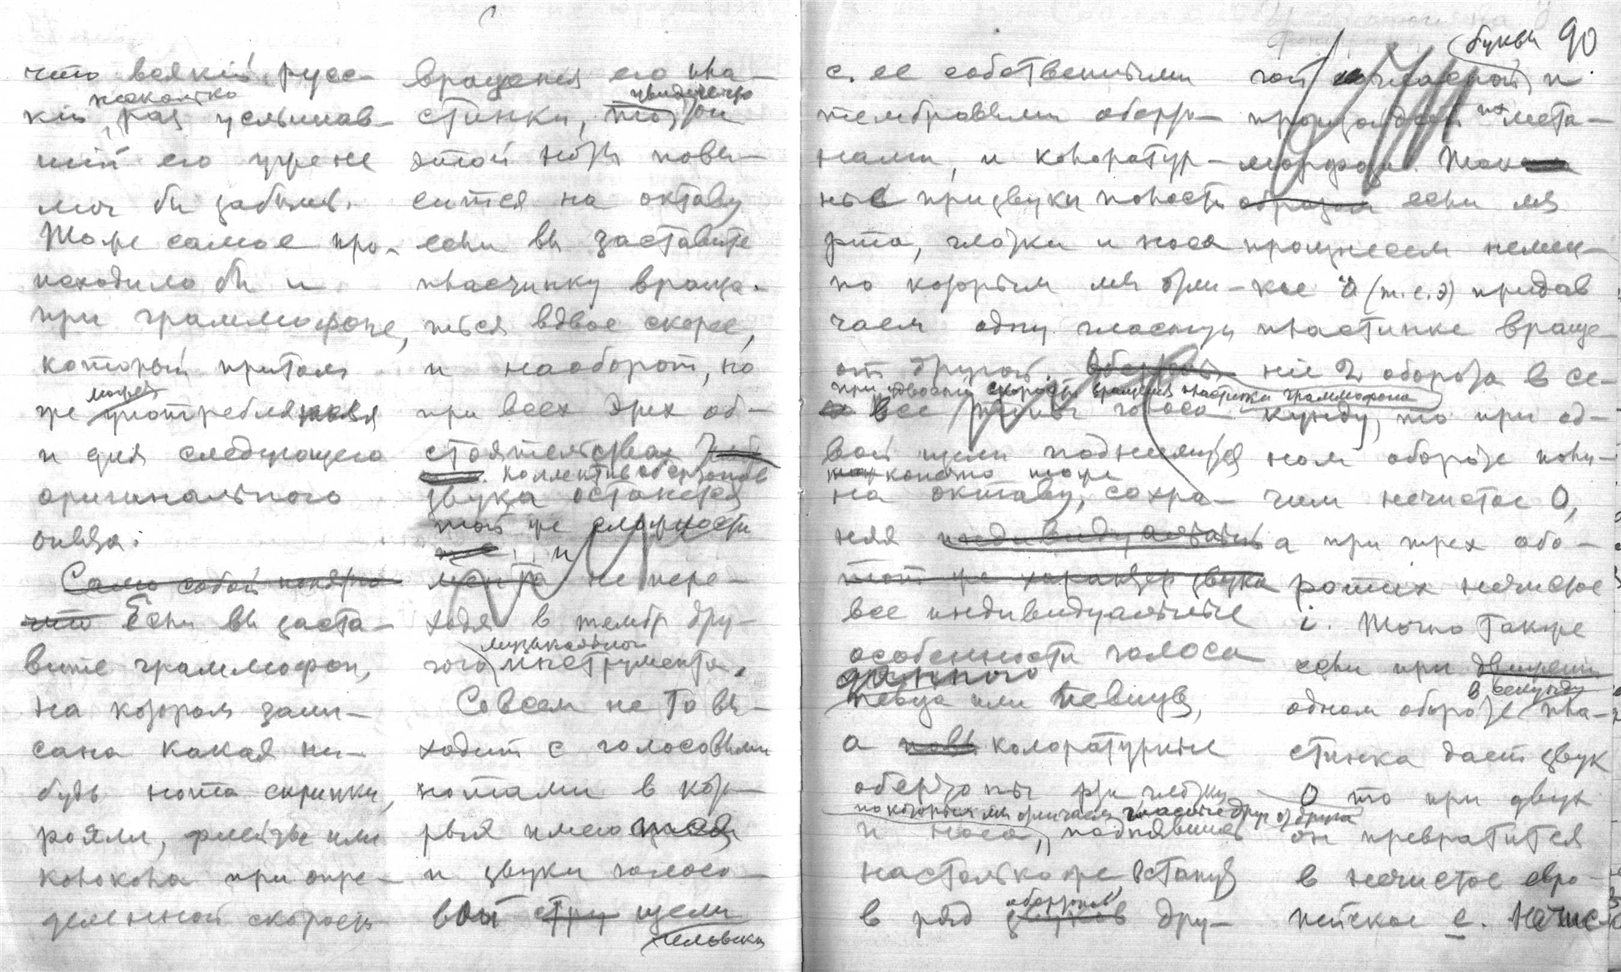 что всякій рус-
несколько
кій, раз услышав-
шій его уже не
мог бы забыть.
То же самое про-
исходило бы и
при граммофоне,
который притом
может
же употребляться
и для следующего
оригинального
опыта:
Само собой понятно
что Если вы заста-
вите граммофон,
на котором запи-
сана какая ни-
будь нота скрипки,
рояли, флейты или
колокола при опре-
деленной скорости
вращения его пла-
стинки, то
этой ноты повы-
сится на октаву
если вы заставите
пластинку враща-
ться вдвое скорее,
и наоборот, но
при всех этих об-
стоятельствах
комплектив обертонов
звука останется
той же сложности
и
не пере-
ходя в тембр дру-
музыкальной
гого инструмента.
Совсем не то вы-
ходит с голосовыми
нотами в кото-
рыя имеются
и звуки голосо-
вой щели
человека
90
буквы
с ее собственными
тембровыми оберто-
нами, и колоратур-
ные призвуки полости
рта, глотки и носа
по которым мы отли-
чаем одну гласную
от другой.
при двойной скорости вращения пластинки граммофона
все голосо-
вой щели поднимутся
конечно тоже
на октаву, сохра-
няя индивидуальный
тот же характер звука
все индивидуальные
особенности голоса
данного
певца или певицы,
а колоратурные
обертоны рта глотки
по которым мы отличаем гласные друг от друга
и носа, поднявшись
настолько же встанут
обертонов
в ряд звуков дру-
гой гласной, и
произойдет мета-
морфоза. Так
образом если мы
произнесем немец-
кое ö (т.е.э) придав
пластинке враще-
ніе 2 оборота в се-
кунду, то при од-
ном обороте полу-
чим нечистое О,
а при трех обо-
ротах нечистое
i. Точно также
если при движении
в секунду
одном обороте пла-
стинка дает звук
О то при двух
он превратится
в нечистое евро-
пейское е. Нечис-